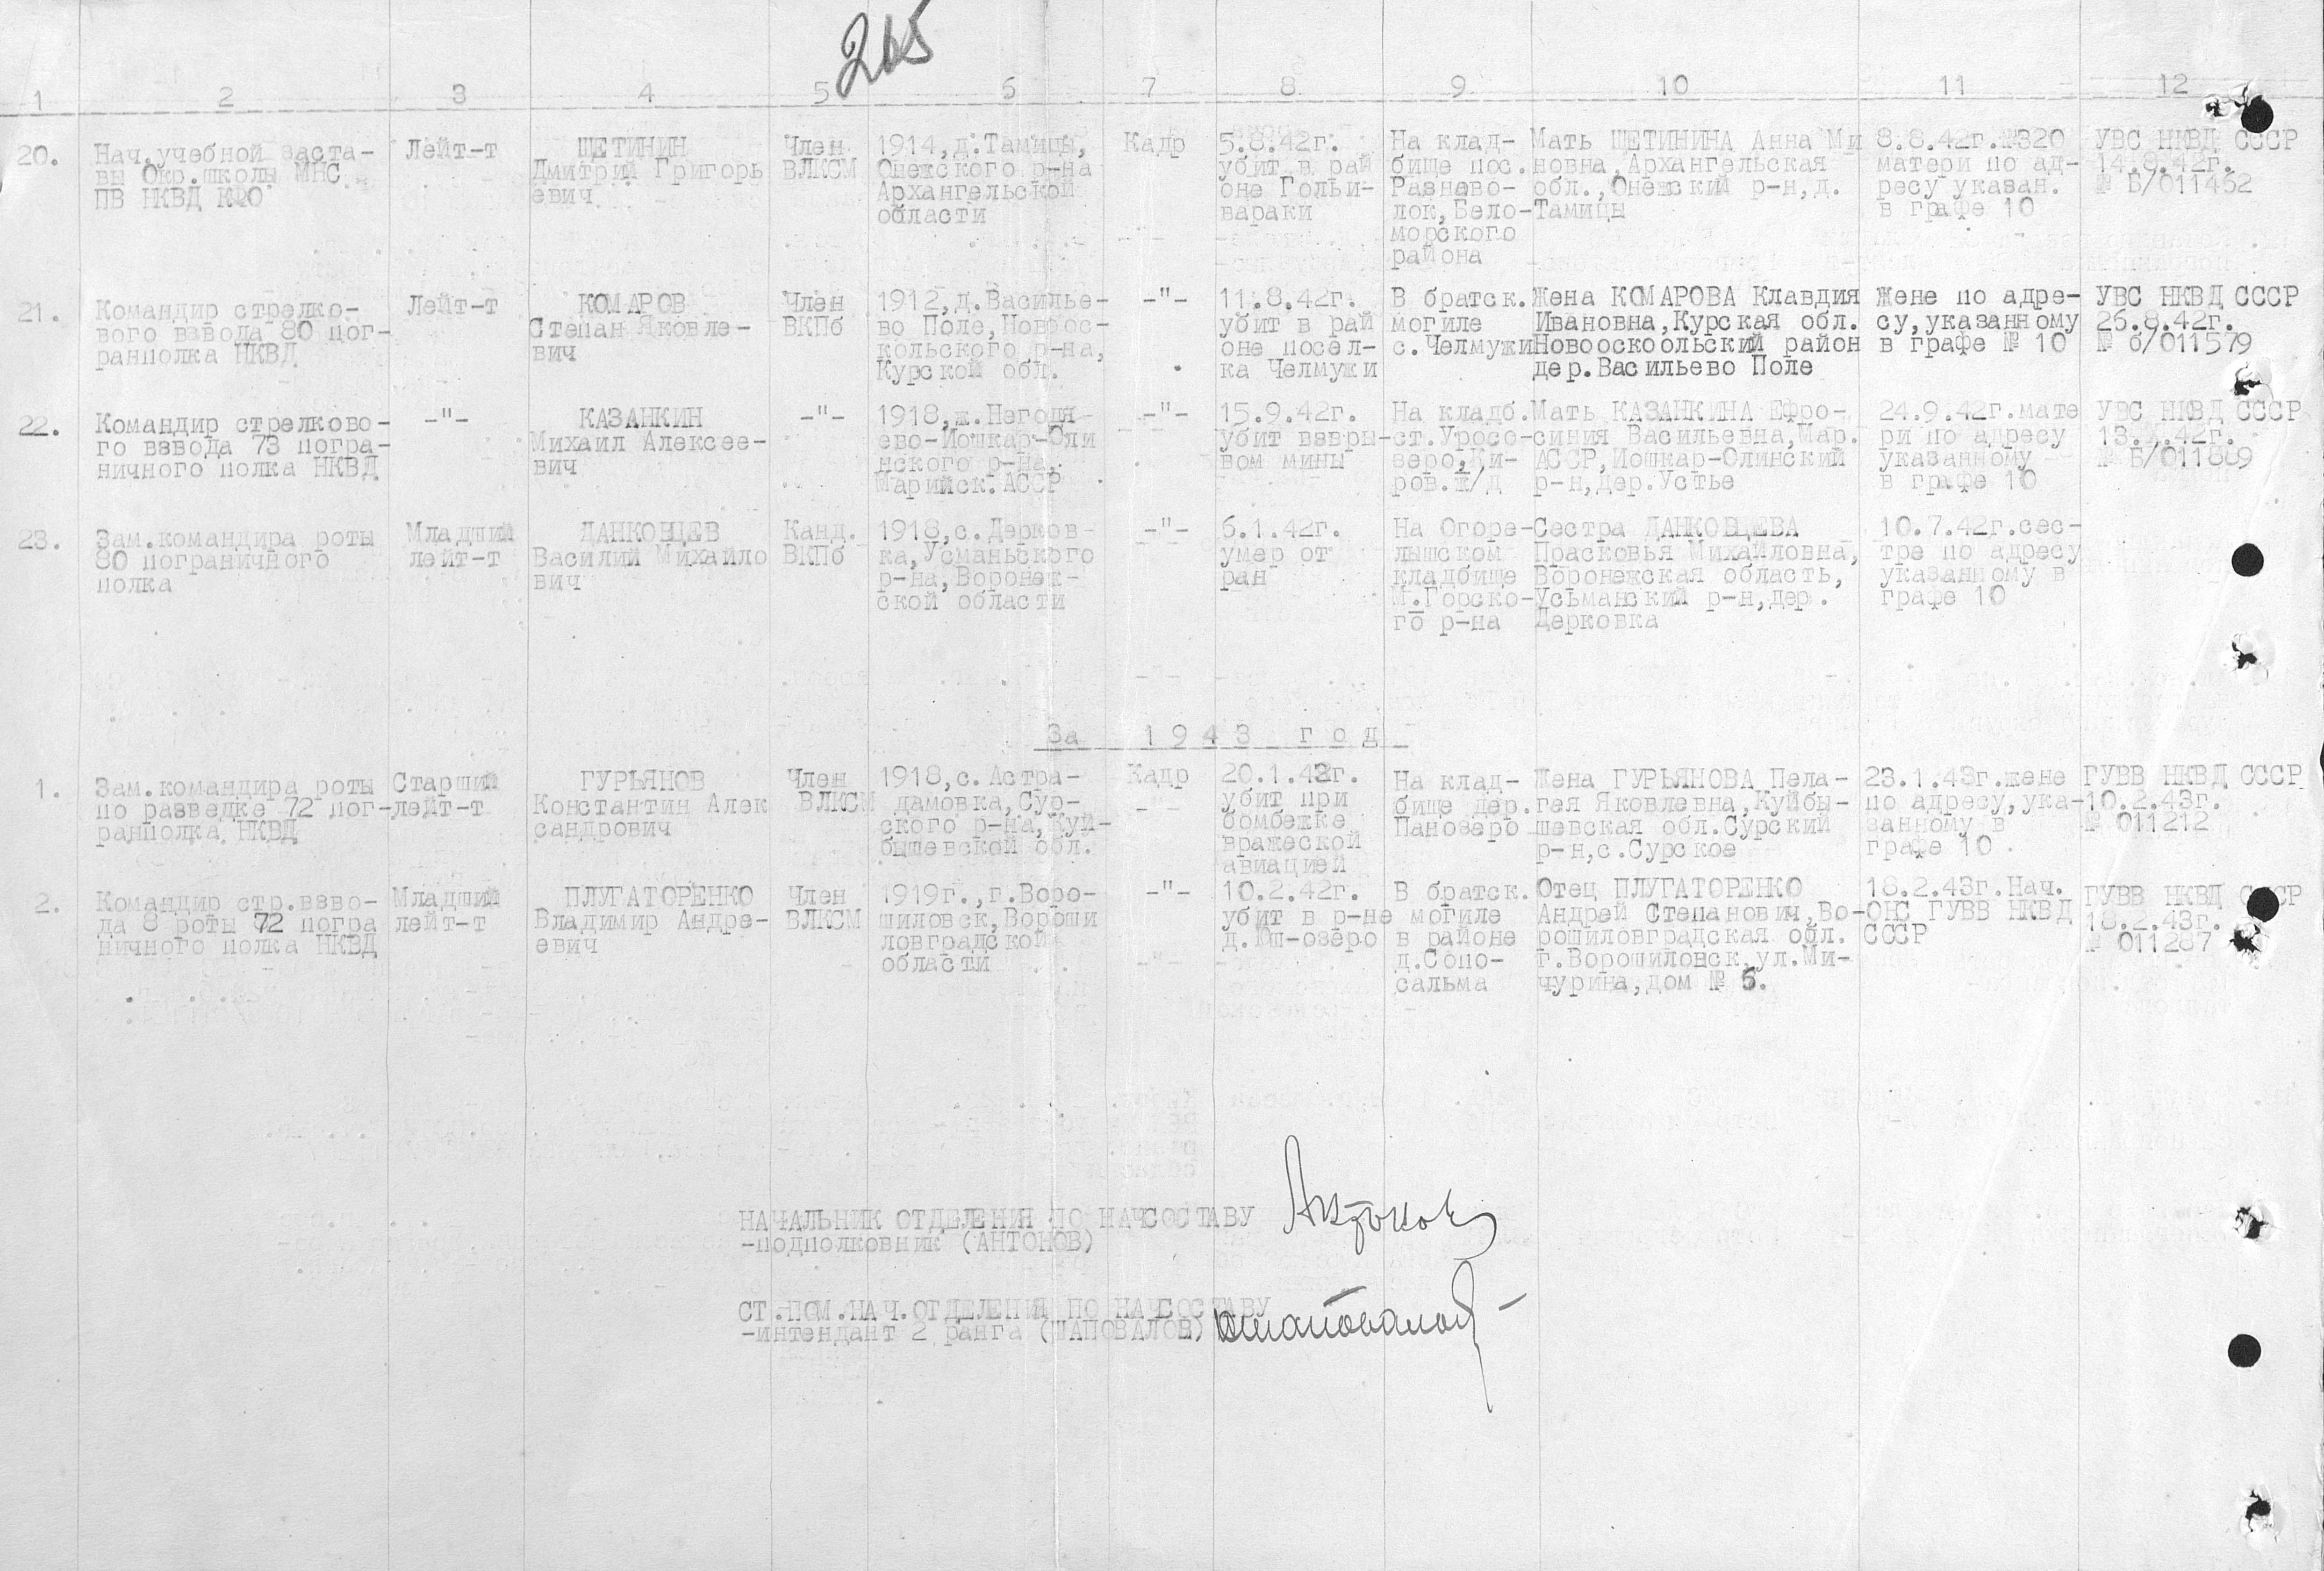 265
1 2 3 4 5 6 7 8 9 10 11 12
20.
Нач.учебной заста-
вы Окр.школы МНС
ПВ НКВД КФО
Лейт-т
ЩЕТИНИН
Дмитрий Григорь
евич
Член
ВЛКСМ
1914,д.Тамицы,
Онежского р-на
Архангельской
области
Кадр
5.8.42г.
убит в рай
оне Гольи-
вараки
На клад-
бище пос.
Разнаво-
лок,Бело-
морского
района
Мать ЩЕТИНИНА Анна Ми
новна,Архангельская
обл.,Онежский р-н,д.
Тамицы
8.8.42г.№320
матери по ад-
ресу указан.
в графе 10
УВС НКВД СССР
14.8.42г.
№ Б/011452
21.
Командир стрелко-
вого взвода 80 пог-
ранполка НКВД
Лейт-т
КОМАРОВ
Степан Яковле-
вич
Член
ВКПб
1912,д.Василье-
во Поле,Новоос-
кольского р-на,
Курской обл.
-"-
11.8.42г.
убит в рай
оне посел-
ка Челмужи
В братск.
могиле
с.Челмужи
Жена КОМАРОВА Клавдия
Ивановна,Курская обл.
Новооскоольский район
дер.Васильево Поле
Жене по адре-
су,указанному
в графе № 10
УВС НКВД СССР
26.8.42г.
№ б/011579
22.
Командир стрелково-
го взвода 73 погра-
ничного полка НКВД
-"-
КАЗАНКИН
Михаил Алексее-
вич
-"-
1918,ж.Негодя-
ево-Йошкар-Оли
нского р-на,
Марийск.АССР
-"-
15.9.42г.
убит взры-
вом мины
На кладб.
ст.Уросо-
зеро,Ки-
ров.ж/д
Мать КАЗАНКИНА Ефро-
синия Васильевна,Мар.
АССР,Йошкар-Олинский
р-н,дер.Устье
24.9.42г.мате
ри по адресу
указанному
в графе 10
УВС НКВД СССР
№ Б/011889
23.
Зам.командира роты
80 пограничного
полка
Младший
лейт-т
ДАНКОВЦЕВ
Василий Михайло
вич
Канд.
ВКПб
1918,с.Дерков-
ка,Усманьского
р-на,Воронеж-
ской области
-"-
6.1.42г.
умер от
ран
На Огоре-
лышском
кладбище
М.Горско-
го р-на
Сестра ДАНКОВЦЕВА
Прасковья Михайловна,
Воронежская область,
Усьманский р-н,дер.
Дерковка
10.7.42г.сес-
тре по адресу
указанному в
графе 10
За 1943 год
1.
Зам.командира роты
по разведке 72 пог-
ранполка НКВД
Старший
лейт-т
ГУРЬЯНОВ
Константин Алек
сандрович
Член
ВЛКСМ
1918,с.Астра-
дамовка,Сур-
ского р-на,Куй-
бышевской обл.
Кадр
20.1.43г.
убит при
бомбежке
вражеской
авиацией
На клад-
бище дер.
Панозеро
Жена ГУРЬЯНОВА Пела-
гея Яковлевна,Куйбы-
шевская обл.Сурский
р-н,с.Сурское
23.1.43г.жене
по адресу,ука-
занному в
графе 10.
ГУВВ НКВД СССР
10.2.43г.
№ 011212
2.
Командир стр.взво-
да 8 роты 72 погра
ничного полка НКВД
Младший
лейт-т
ПЛУГАТОРЕНКО
Владимир Андре-
евич
Член
ВЛКСМ
1919г.,г.Воро-
шиловск,Вороши
ловградской
области
-"-
10.2.42г.
убит в р-не
д.Юш-озеро
В братск.
могиле
в районе
д.Сопо-
сальма
Отец ПЛУГАТОРЕНКО
Андрей Степанович,Во-
рошиловградская обл.
г.Ворошиловск,ул.Ми-
чурина,дом № 6.
18.2.43г.Нач.
ОНС ГУВВ НКВД
СССР
ГУВВ НКВД СССР
18.2.43г.
№ 011287
НАЧАЛЬНИК ОТДЕЛЕНИЯ ПО НАЧСОСТАВУ
-подполковник (АНТОНОВ)
Антонов
СТ.ПОМ.НАЧ.ОТДЕЛЕНИЯ ПО НАЧСОСТАВУ
-интендант 2 ранга (ШАПОВАЛОВ)
Шаповалов